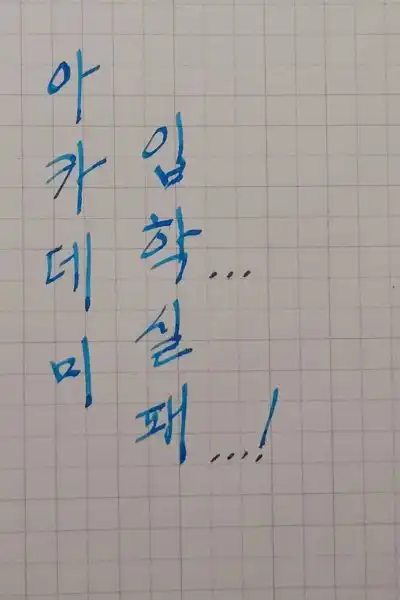 아카데미
입학...
실패....!